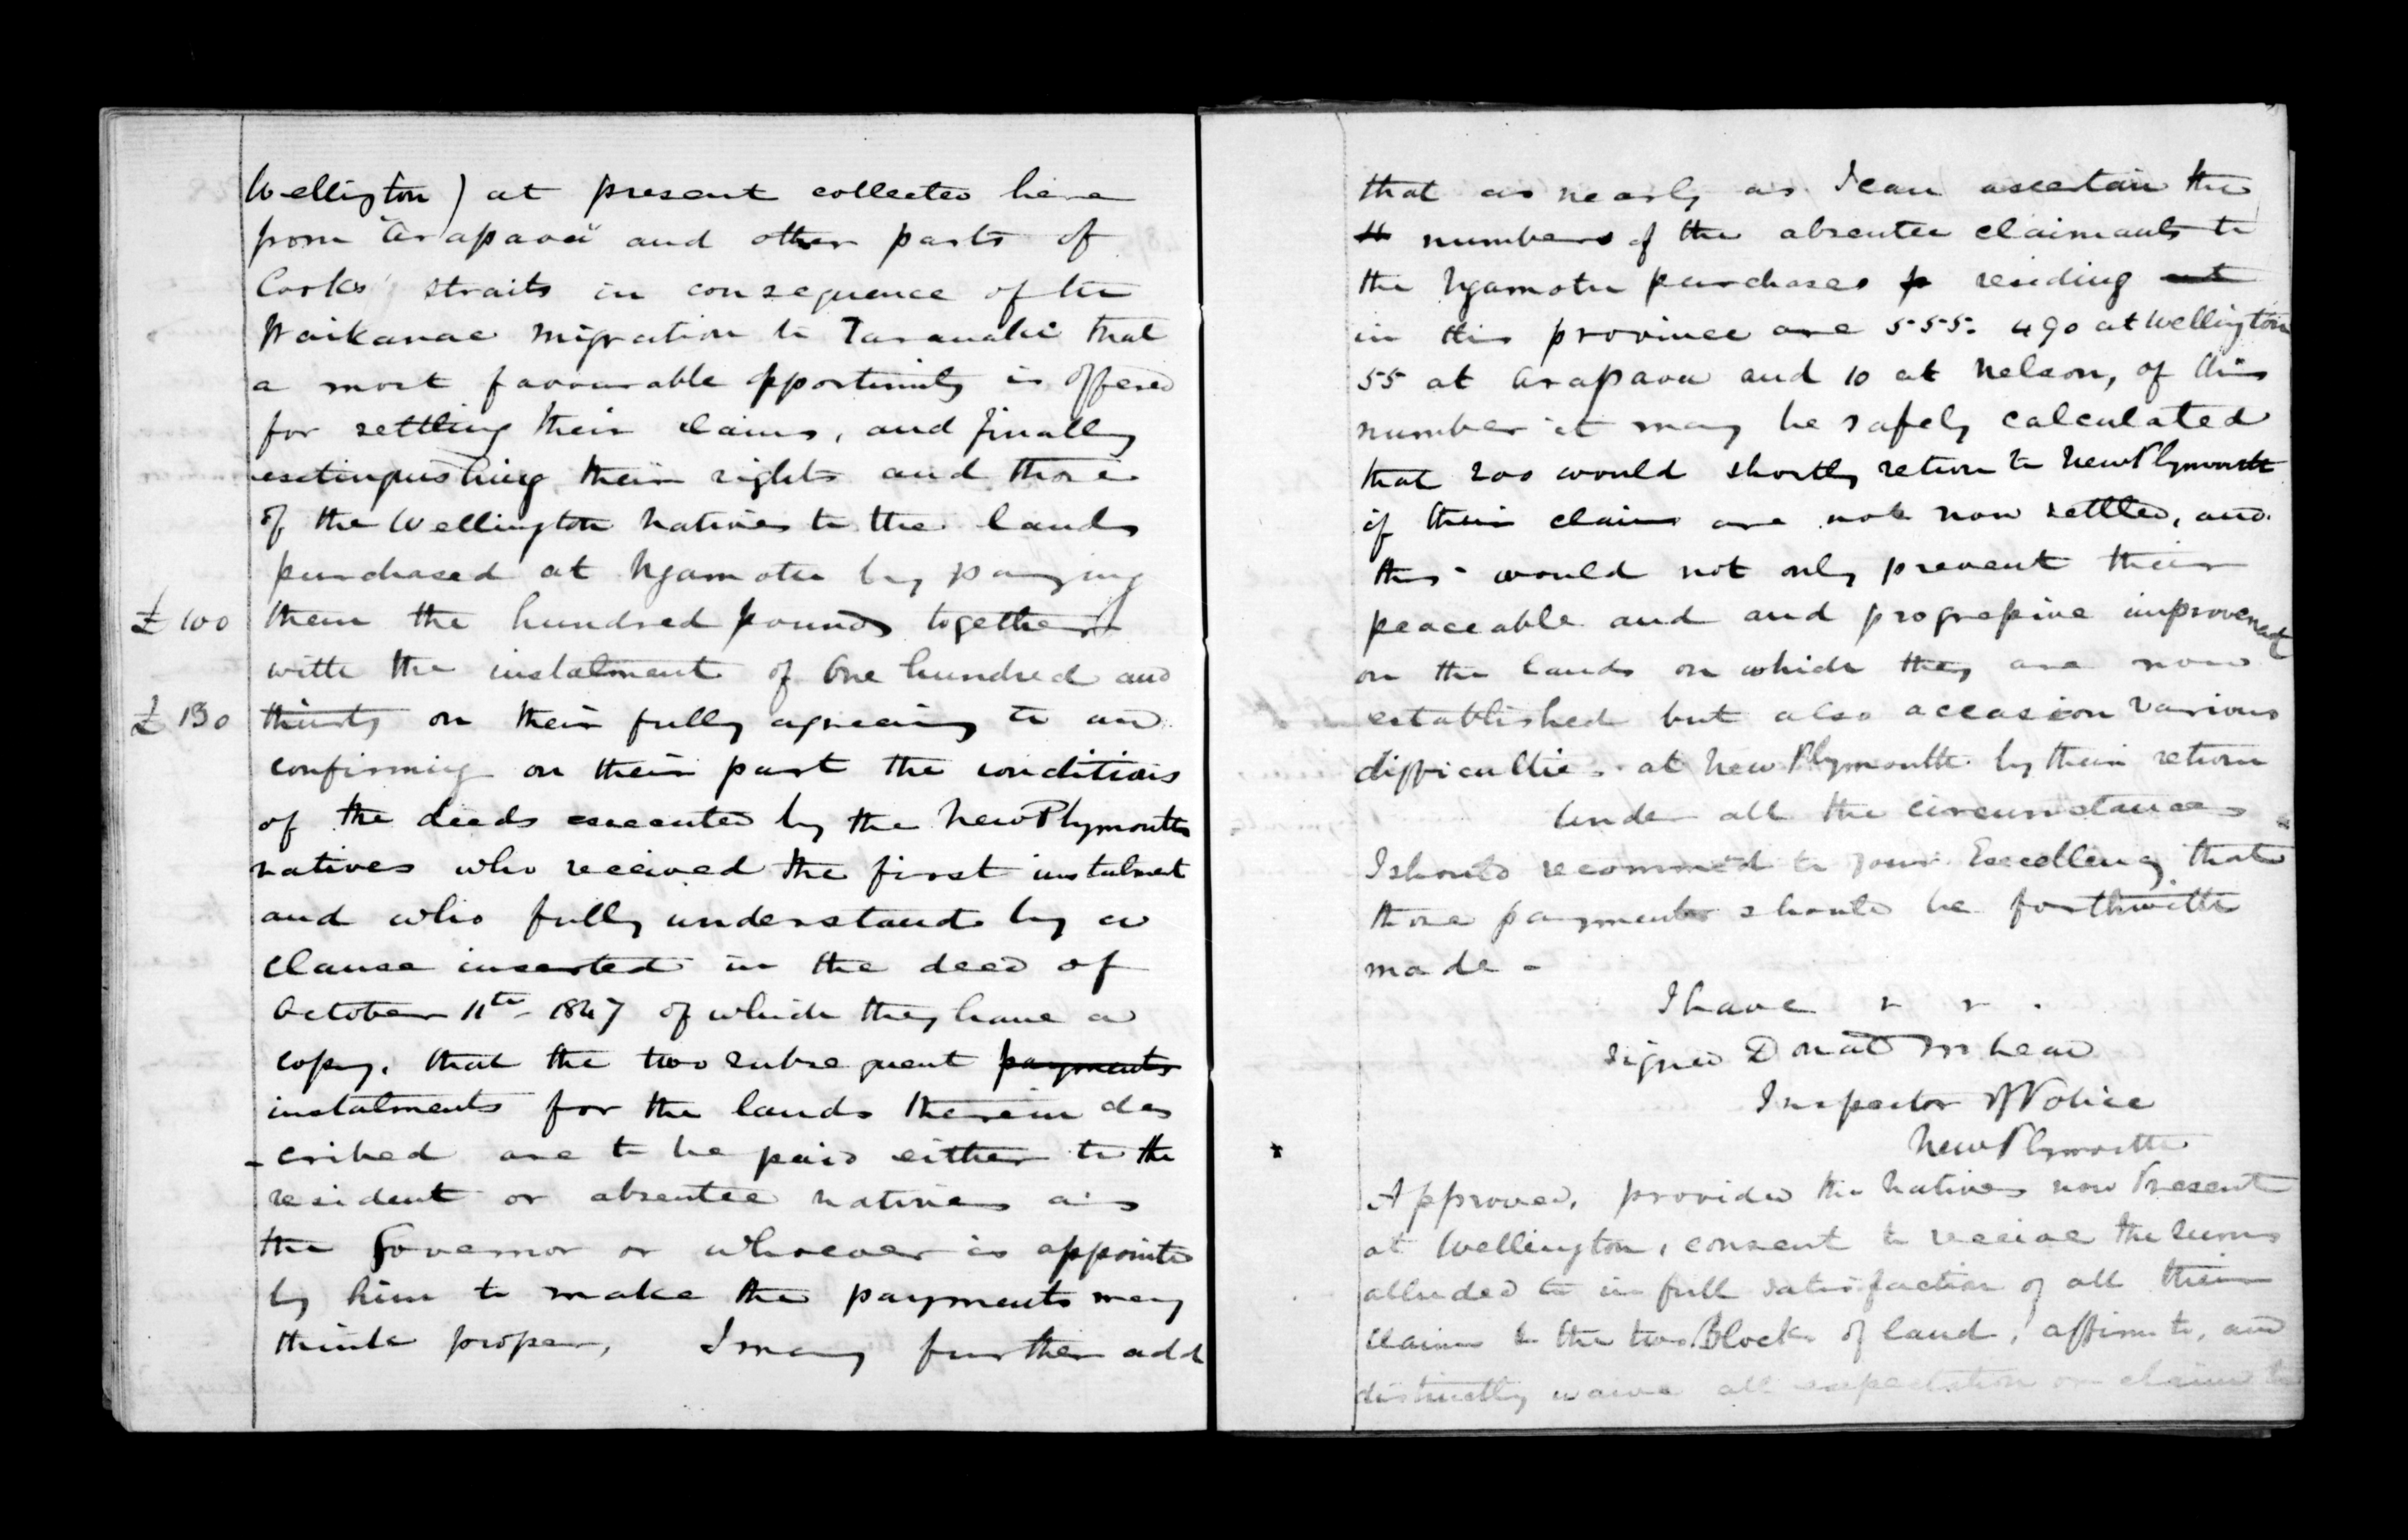 Wellington) at present collected here
from "Arapaoa" and other parts of
Cooks straits in consequence of the
Waikanae migration to Taranaki that
a most favourable opportunity is offered
for settling their claims, and finally
extinguishing their rights and those
of the Wellington Natives to the lands
purchased at Ngamotu by paying
£100 them the hundred pounds together
with the instalment of One hundred and
£130 thirty on their fully agreeing to and
confirming on their part the conditions
of the deeds executed by the New Plymouth
natives who received the first instalment
and who fully understand by a
clause inserted in the deed of
October 11th - 1847 of which they have a
copy. that the two subsequent payments
instalments for the lands therein des
-cribed are to be paid either to the
resident or absentee natives as
the Governor or whoever is appointed
by him to make the payments may
think proper, I may further add
that as nearly as I can ascertain the
numbers of the absentee claimants to
the Ngamotu purchases residing
in this province are 555. 490 at Wellington
55 at Arapaoa and 10 at Nelson, of this
number it may be safely calculated
that 200 would shortly return to New Plymouth
if their claims are not now settled, and
this would not only prevent their
peaceable and and progressive improvement
on the lands on which they are now
established but also occasion various
difficulties at New Plymouth by their return
Under all the circumstances
I should recommend to your Excellency that
those payments should be forthwith
made -
I have
Signed Donald McLean
Inspector of Police
New Plymouth
Approved, provided the Natives now Present
at Wellington, consent to receive the sums
alluded to in full satisfaction of all their
claims to the two Blocks of land, and
distinctly waive all expectation or claim to